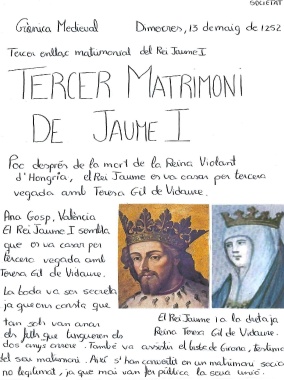 SOCIETAT
Crònica Medieval
Dimecres, 13 de maig de 1252
Tercer enllaç matrimonial del Rei Jaume I
TERCER MATRIMONI
DE JAUME I
Poc després de la mort de la Reina Violant
d'Hongria, el Rei Jaume es va casar per tercera
vegada amb Teresa Gil de Vidaure.
Ana Gosp, València
El Rei Jaume I sembla
que es va casar per
tercera vegada amb
Teresa Gil de Vidaure.
La boda va ser secreta
ja que ens consta que
tan sols van anar
els fills que tingueren els
dos anys arrere. També va assistir el bisbe de Girona, testimoni
del seu matrimoni. Així s'han convertit en un matrimoni social
no legitimat, ja que mai van fer pública la seua unió.
El Rei Jaume I a la dreta ja
Reina Teresa Gil de Vidaure.